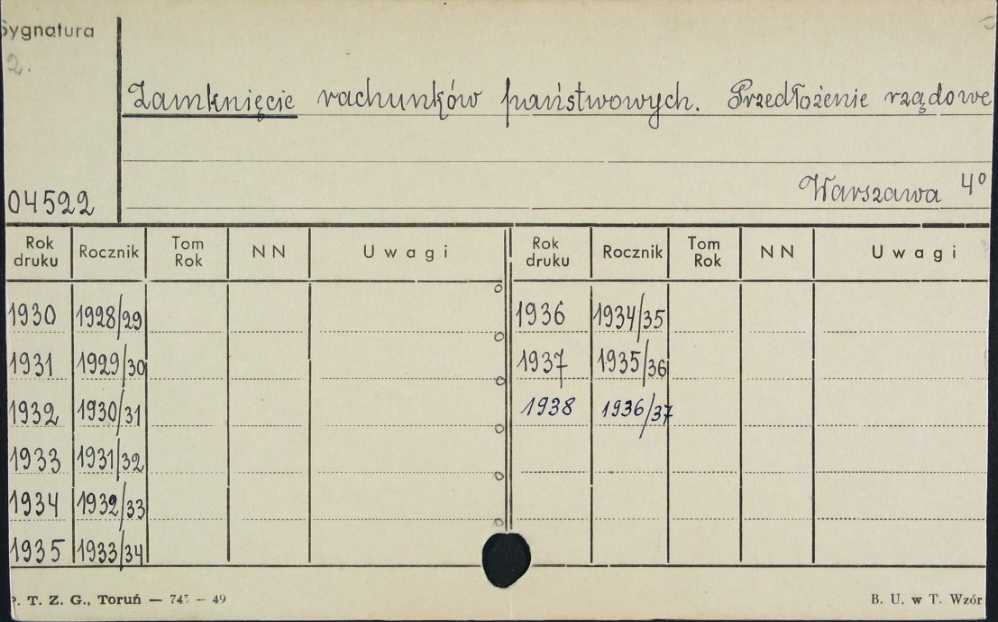 Sygnatura
2.
Zamknięcie rachunków państwowych. Przedłożenie rządowe
Warszawa 4°
04522
Rok druku Rocznik Tom Rok NN Uwagi Rok druku Rocznik Tom Rok NN Uwagi
1930 1928/29 1936 1934/35
1931 1929/30 1937 1935/36
1932 1930/31 1938 1936/37
1933 1931/32
1934 1932/33
1935 1933/34
P. T. Z. G., Toruń — 745 — 49 B. U. w T. Wzór